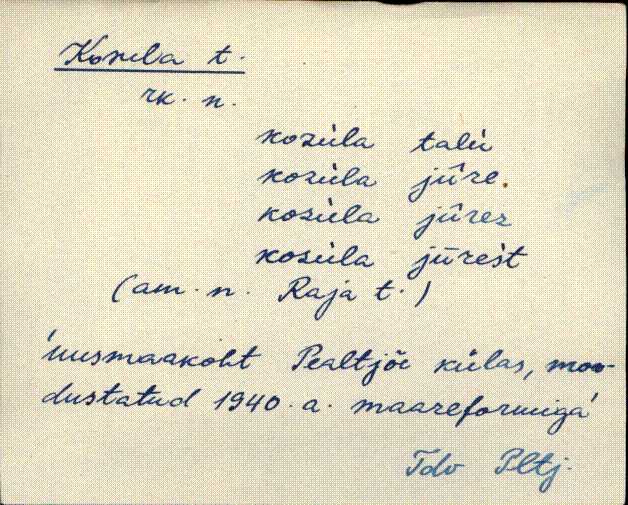 Kosula t.
rk. n.
kozùla talù
kozùla jūre.
kozùla jūrez
kozùla jūrest
(am. n. Raja t.)
'uusmaakoht Pealtjõe külas, moo-
dustatud 1940. a. maareformiga'
Tdv Pltj.